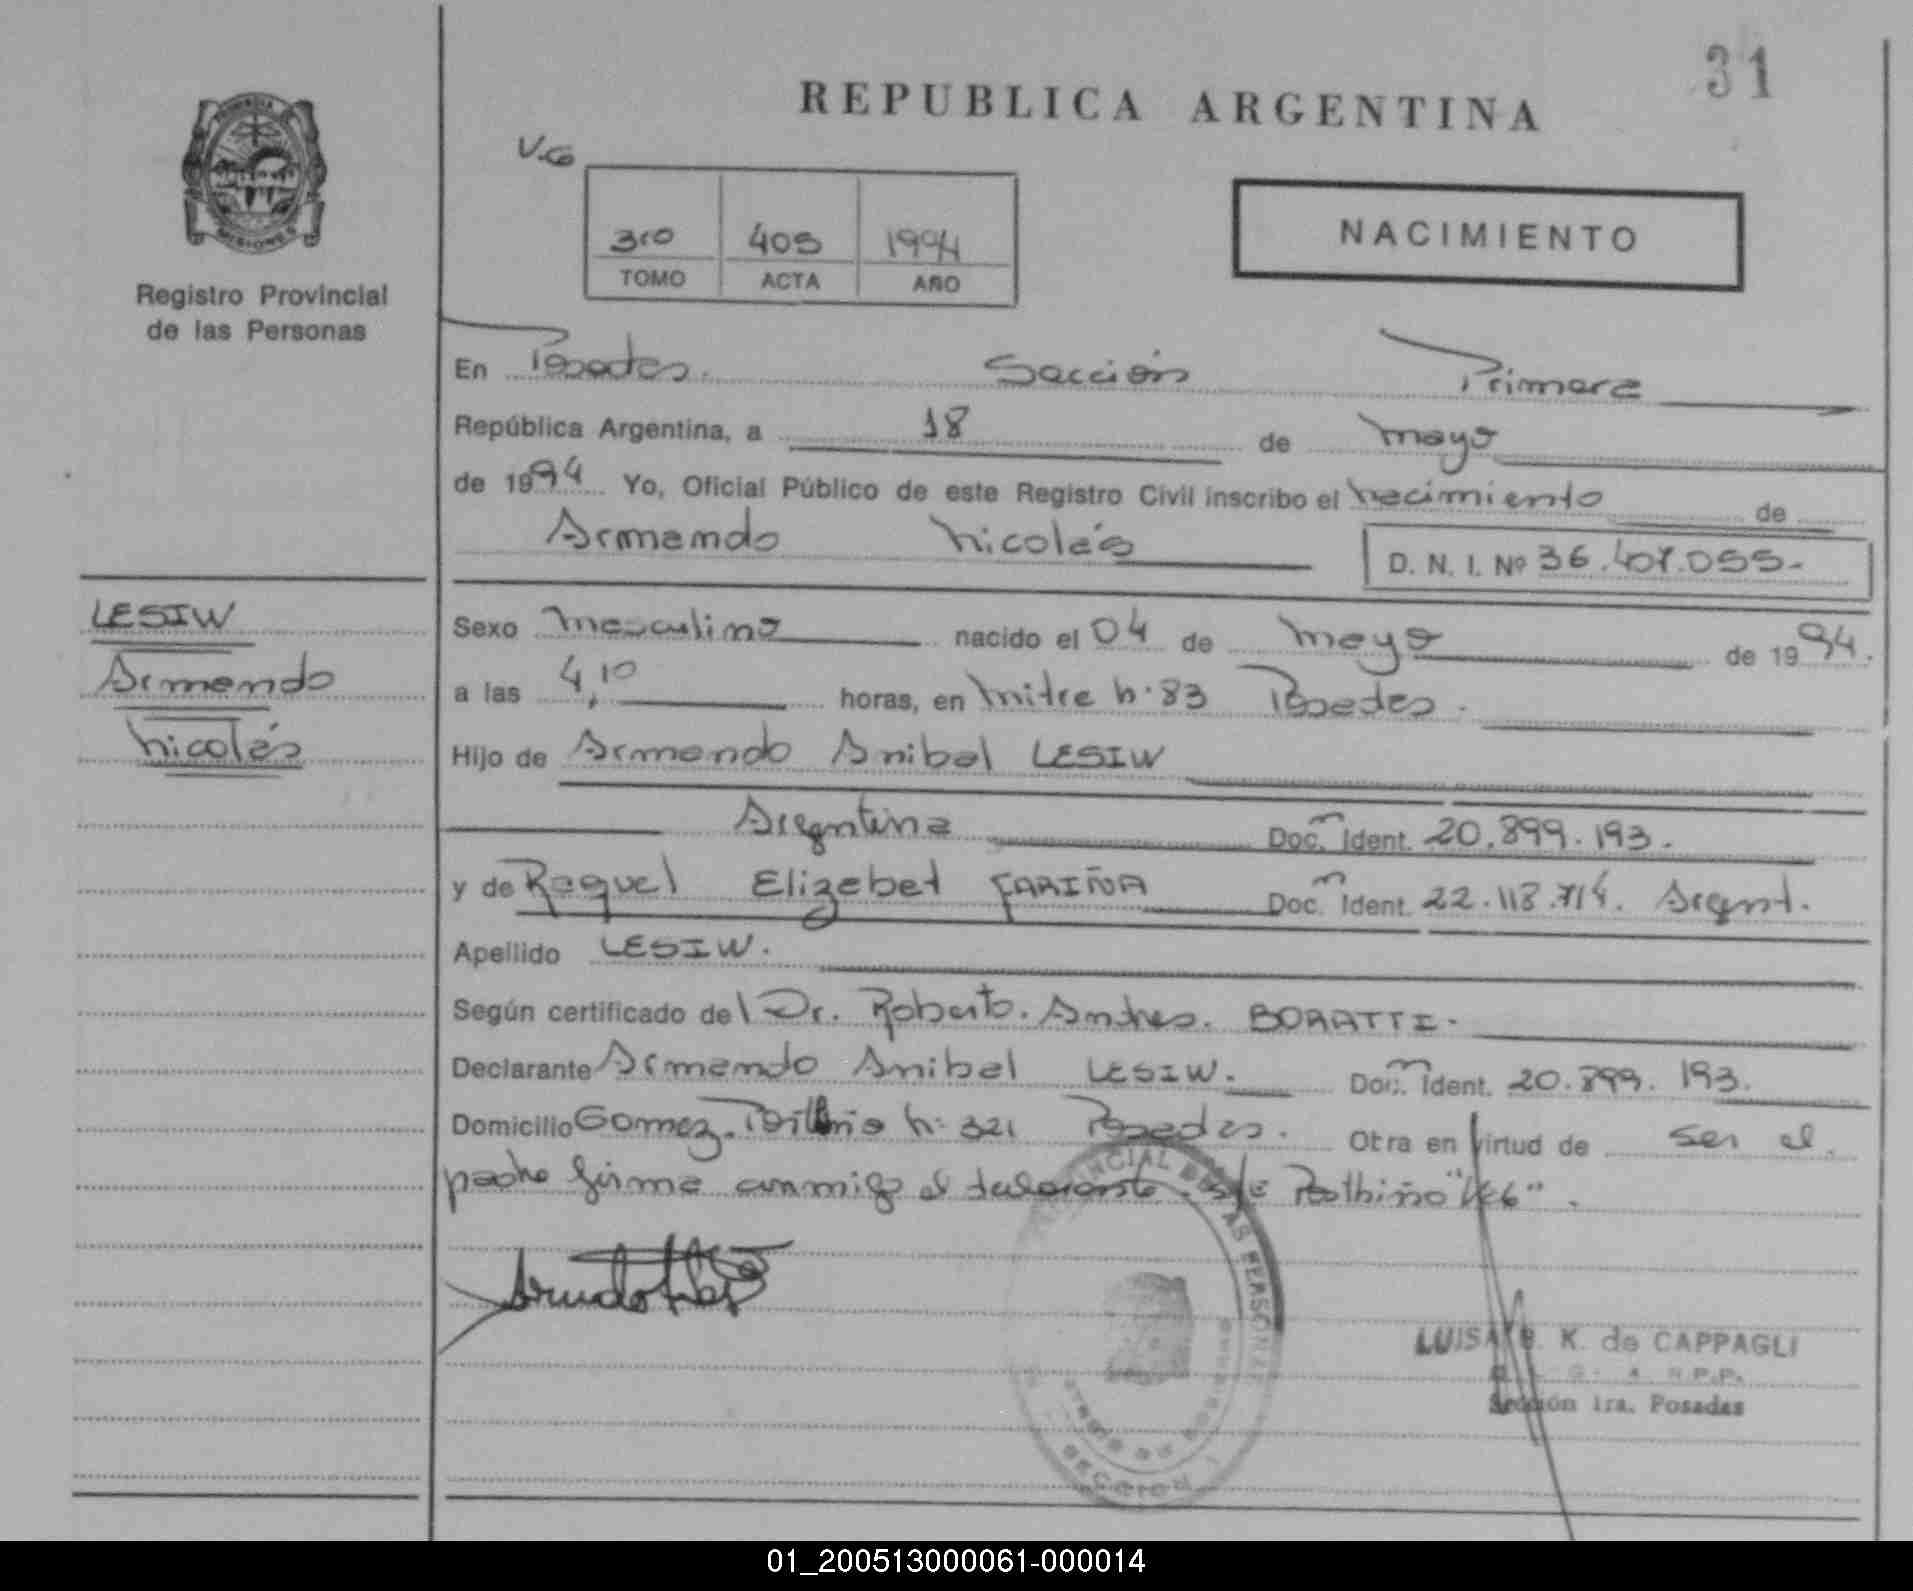 31
REPUBLICA ARGENTINA
MISIONES
Registro Provincial
de las Personas
3ro 405 1994
TOMO ACTA AÑO
NACIMIENTO
En Posadas. Sección Primera
República Argentina, a 18 de mayo
de 1994 Yo, Oficial Público de este Registro Civil inscribo el nacimiento de
Armando Nicolás
D. N. I. Nº 36.407.055-
LESIW
Armando
Nicolás
Sexo masculino nacido el 04 de mayo de 1994.
a las 4,10 horas, en Mitre n. 83 Posadas.
Hijo de Armando Anibal LESIW
Argentina Doc. Ident. 20.899.193.
y de Raquel Elizabet FARIÑA Doc. Ident. 22.113.714. Argent.
Apellido LESIW.
Según certificado del Dr. Roberto. Andres. BORATTI.
Declarante Armando Anibal LESIW. Doc. Ident. 20.899.193.
Domicilio Gomez n: 321 Posadas. Otra en virtud de ser el
padre firma conmigo el declarante.
LUISA B. K. de CAPPAGLI
Sección 1ra. Posadas
SECCION 1
01_200513000061-000014